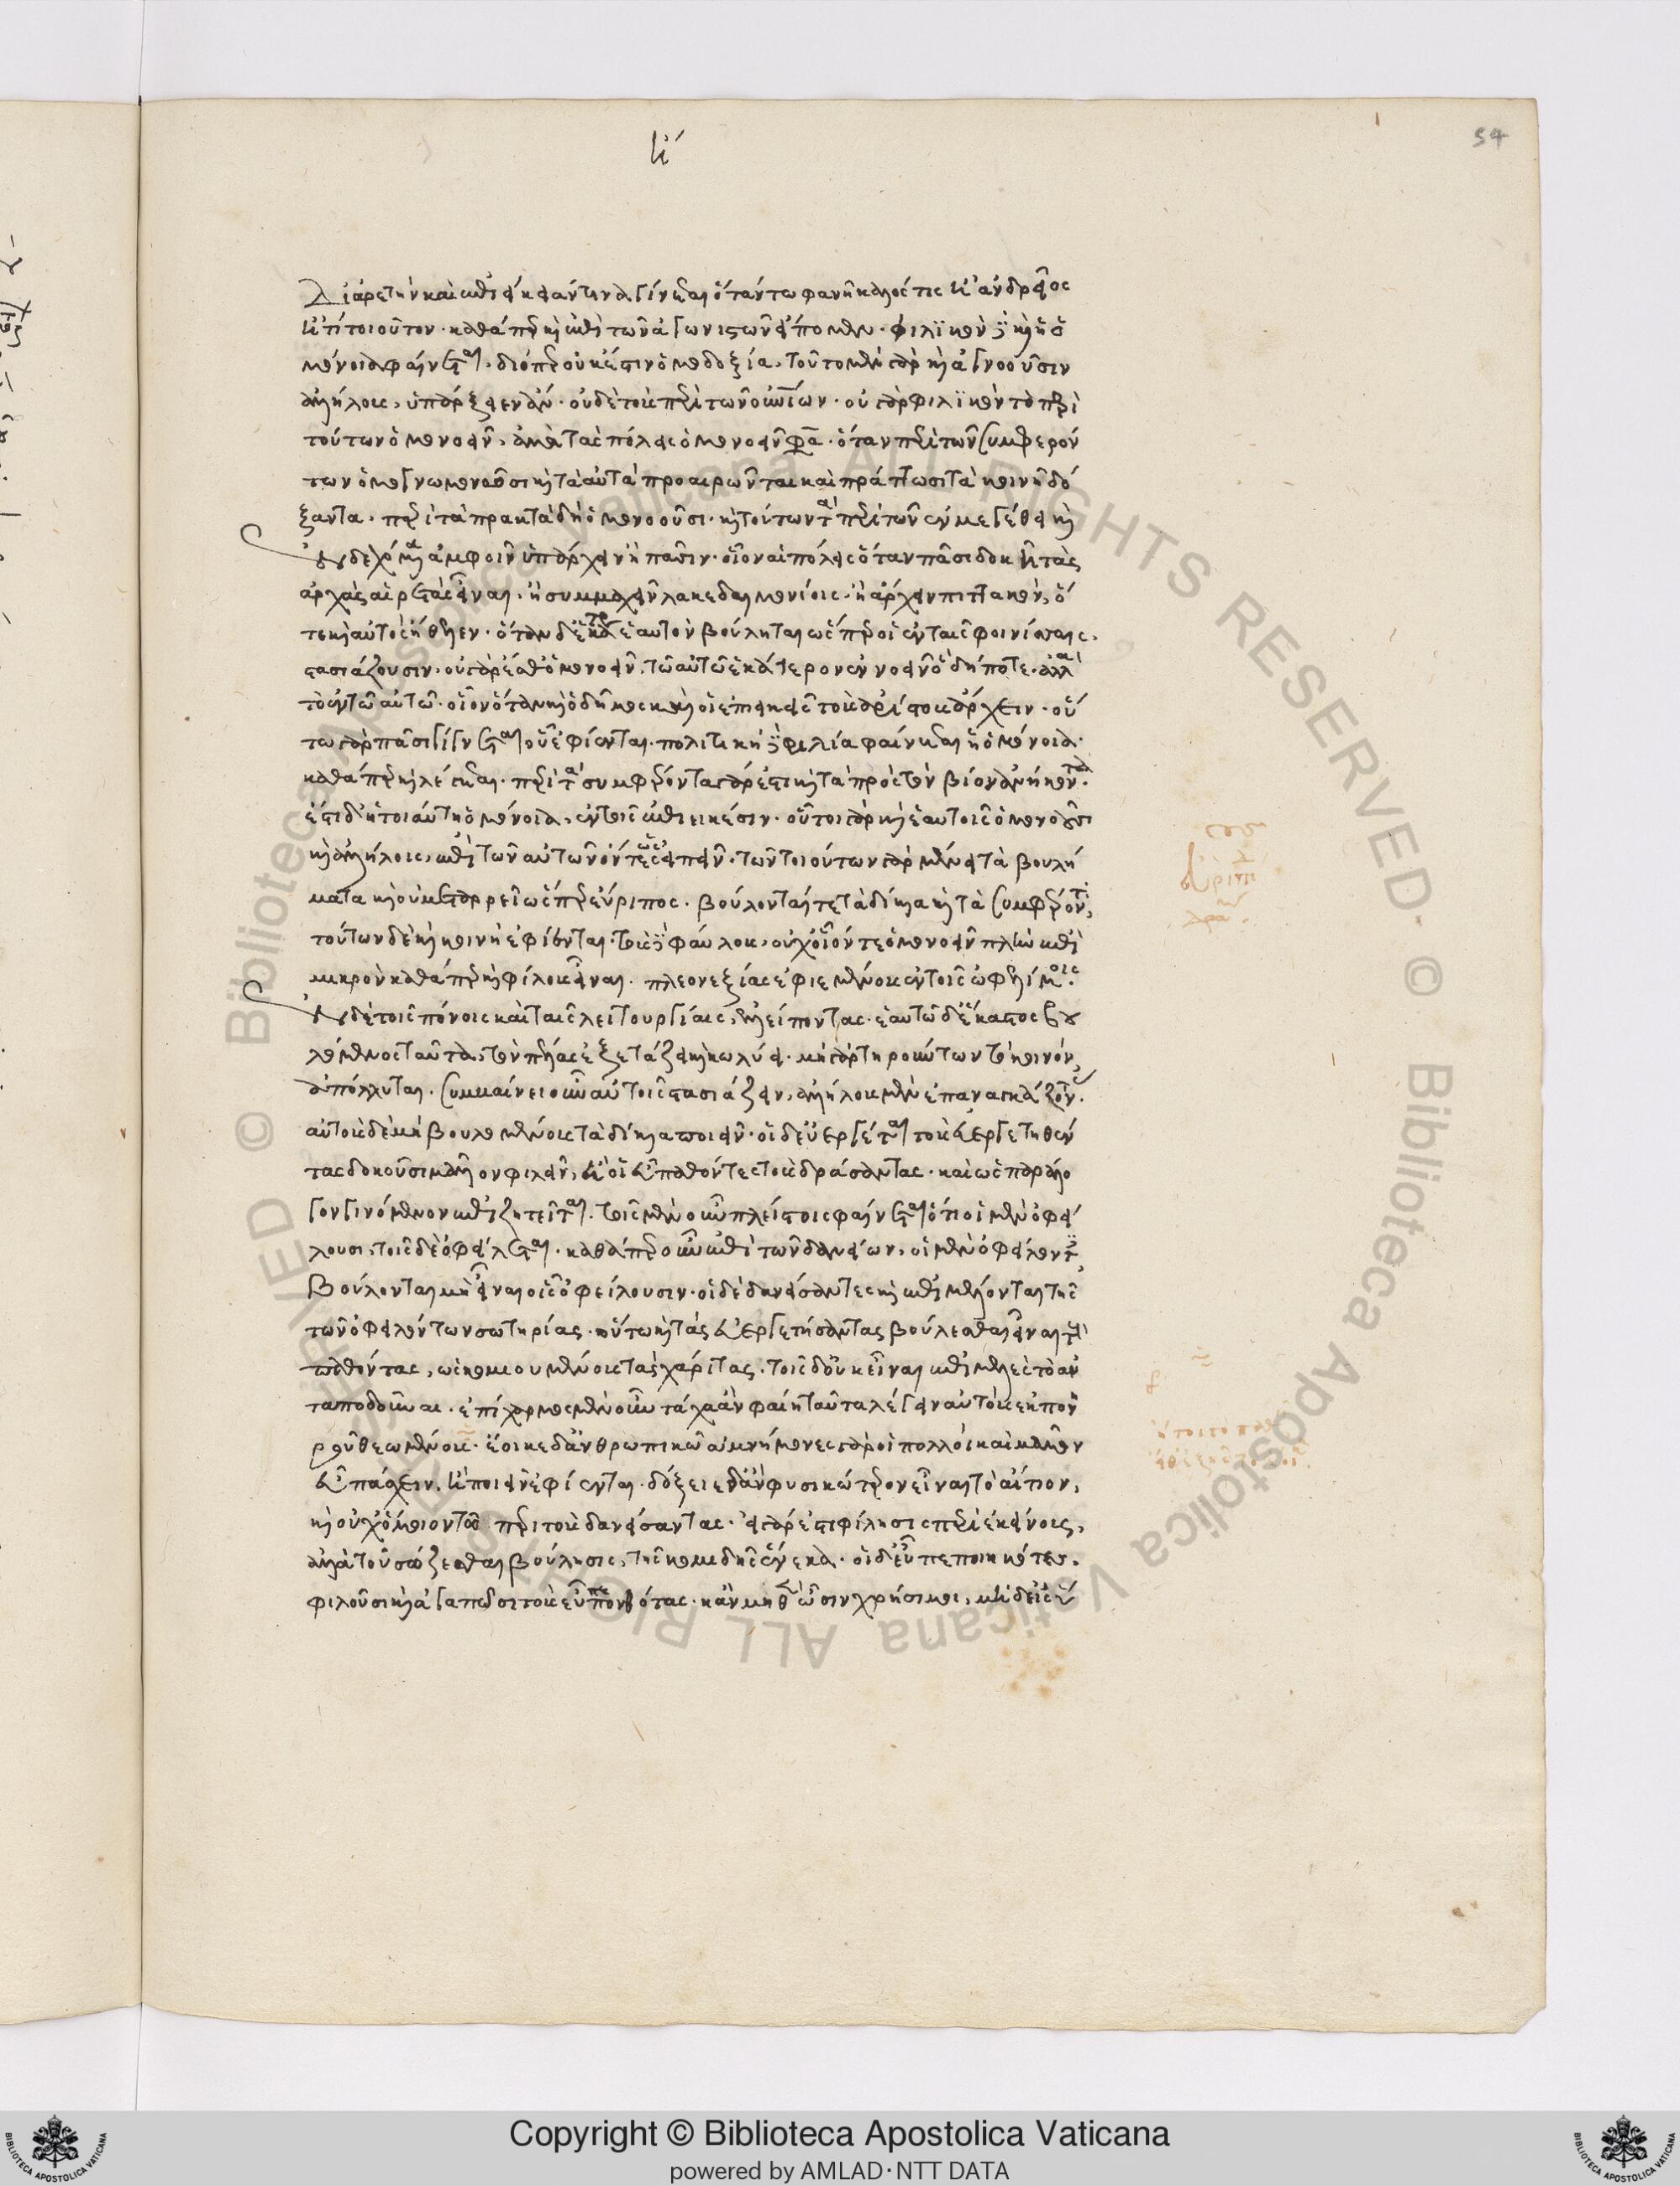 κ΄
54
δι ἀρετὴν καὶ ἐπιείκειάν τινα γίνεται ὅταν τω φανῆ καλός τις ἢ ἀνδρεῖος
ἤ τι τοιοῦτον· καθάπερ καὶ ἐπὶ τῶν ἀγωνιστῶν εἴπομεν· φιλικὸν δὲ καὶ ἡ ὁ
μόνοια φαίνεται, διόπερ οὐκ ἔστιν ὁμοδοξία, τοῦτο μὲν γὰρ καὶ ἀγνοοῦσιν
ἀλλήλους, ὑπάρξειεν ἄν· οὐδὲ τοὺς περὶ τῶν οὐρανίων· οὐ γὰρ φιλικὸν τὸ περὶ
τούτων ὁμονοεῖν, ἀλλὰ τὰς πόλεις ὁμονοεῖν φασίν· ὅταν περὶ τῶν συμφερόν
των ὁμογνωμονοῦσι καὶ τὰ αὐτὰ προαιρῶνται καὶ πράττωσι τὰ κοινῆ δό
ξαντα· περὶ τὰ πρακτὰ δὴ ὁμονοοῦσι· καὶ τούτων τὰ περὶ τῶν ἐν μεγέθει καὶ
ἐνδεχόμενα ἀμφοῖν ὑπάρχειν ἢ πᾶσιν· οἷον αἱ πόλεις ὅταν πᾶσι δοκῆ τὰς
ἀρχὰς αἱρετὰς εἶναι, ἢ συμμαχεῖν λακεδαιμονίοις, ἢ ἄρχειν πιττακὸν, ὅ
τε καὶ αὐτὸς ἤθελεν· ὅταν δ ἑκάτερος ἑαυτὸν βούληται ὥσπερ οἱ ἐν ταῖς φοινίσσαις,
στασιάζουσιν· οὐ γὰρ ἔσθ ὁμονοεῖν, τῶ αὐτῶ ἑκάτερον ἐννοεῖν ὃ δήποτε· ἀλλὰ
τὸ ἐν τῶ αὐτῶ· οἷον ὅταν καὶ ὁ δῆμος καὶ οἱ ἐπιεικεῖς τοὺς ἀρίστους ἄρχειν· οὕ
τω γὰρ πᾶσι γίγνεται οὗ ἐφίενται· πολιτικὴ δὲ φιλία φαίνεται ἡ ὁμόνοια·
καθάπερ καὶ λέγεται· περὶ τὰ συμφέροντα γάρ ἐστι καὶ τὰ πρὸς τὸν βίον ἀνήκοντα.
ἔστι δ ἡ τοιαύτη ὁμόνοια, ἐν τοῖς ἐπιεικέσιν· οὗτοι γὰρ καὶ ἑαυτοῖς ὁμονοοῦσι
καὶ ἀλλήλοις, ἐπὶ τῶν αὐτῶν ὄντες ὡς εἰπεῖν· τῶν τοιούτων γὰρ μένει τὰ βουλή
ματα καὶ οὐ μεταρρεῖ ὥσπερ εὔριπος· βούλονταί τε τὰ δίκαια καὶ τὰ συμφέροντα,
τούτων δὲ καὶ κοινῆ ἐφίενται· τοὺς δὲ φαύλους, οὐχ οἷόν τε ὁμονοεῖν πλὴν ἐπὶ
μικρὸν καθάπερ καὶ φίλους εἶναι· πλεονεξίας ἐφιεμένους ἐν τοῖς ὠφελίμοις·
ἐν δὲ τοῖς πόνοις καὶ ταῖς λειτουργίαις, ἐλλείποντας· ἑαυτῶ δ ἕκαστος βου
λόμενος ταῦτα, τὸν πέλας ἐξετάζει καὶ κωλύει· μὴ γὰρ τηρούντων τὸ κοινὸν,
ἀπόλλυται· συμβαίνει οὖν αὐτοῖς στασιάζειν, ἀλλήλους μὲν ἐπαναγκάζοντας·
αὐτοὺς δὲ μὴ βουλομένους τὰ δίκαια ποιεῖν· οἱ δ εὐεργέται τοὺς εὐεργετηθέν
τας δοκοῦσι μᾶλλον φιλεῖν, ἢ οἱ εὖ παθόντες τοὺς δράσαντας· καὶ ὡς παράλο
γον γινόμενον ἐπιζητεῖται· τοῖς μὲν οὖν πλείστοις φαίνεται ὅτι οἱ μὲν ὀφεί
λουσι, τοῖς δὲ ὀφείλεται· καθάπερ οὖν ἐπὶ τῶν δανείων, οἱ μὲν ὀφείλοντες,
βούλονται μὴ εἶναι οἷς ὀφείλουσιν· οἱ δὲ δανείσαντες καὶ ἐπιμέλονται τῆς
τῶν ὀφειλόντων σωτηρίας· οὕτω καὶ τὰς εὐεργετήσαντας βούλεσθαι εἶναι τοὺς
παθόντας, ὡς κομιουμένους τὰς χάριτας· τοῖς δ οὐκ εἶναι ἐπιμελὲς τὸ ἀν
ταποδοῦναι· ἐπίχαρμος μὲν οὖν τάχα ἂν φαίη ταῦτα λέγειν αὐτοὺς ἐκ πονη
ροῦ θεωμένους· ἔοικε δ ἀνθρωπικῶ ἀμνήμονες γὰρ οἱ πολλοὶ καὶ μᾶλλον
εὖ πάσχειν, ἢ ποιεῖν ἐφίενται· δόξειε δ ἂν φυσικώτερον εἶναι τὸ αἴτιον,
καὶ οὐχ ὅμοιον τῶ περὶ τοὺς δανείσαντας· οὐ γάρ ἐστι φίλησις περὶ ἐκείνους,
ἀλλὰ τοῦ σώζεσθαι βούλησις, τῆς κομιδῆς ἕνεκα· οἱ δ εὖ πεποιηκότες,
φιλοῦσι καὶ ἀγαπῶσι τοὺς εὖ πεπονθότας· κἂν μηθὲν ὦσιν χρήσιμοι, μηδ εἰς ὕ